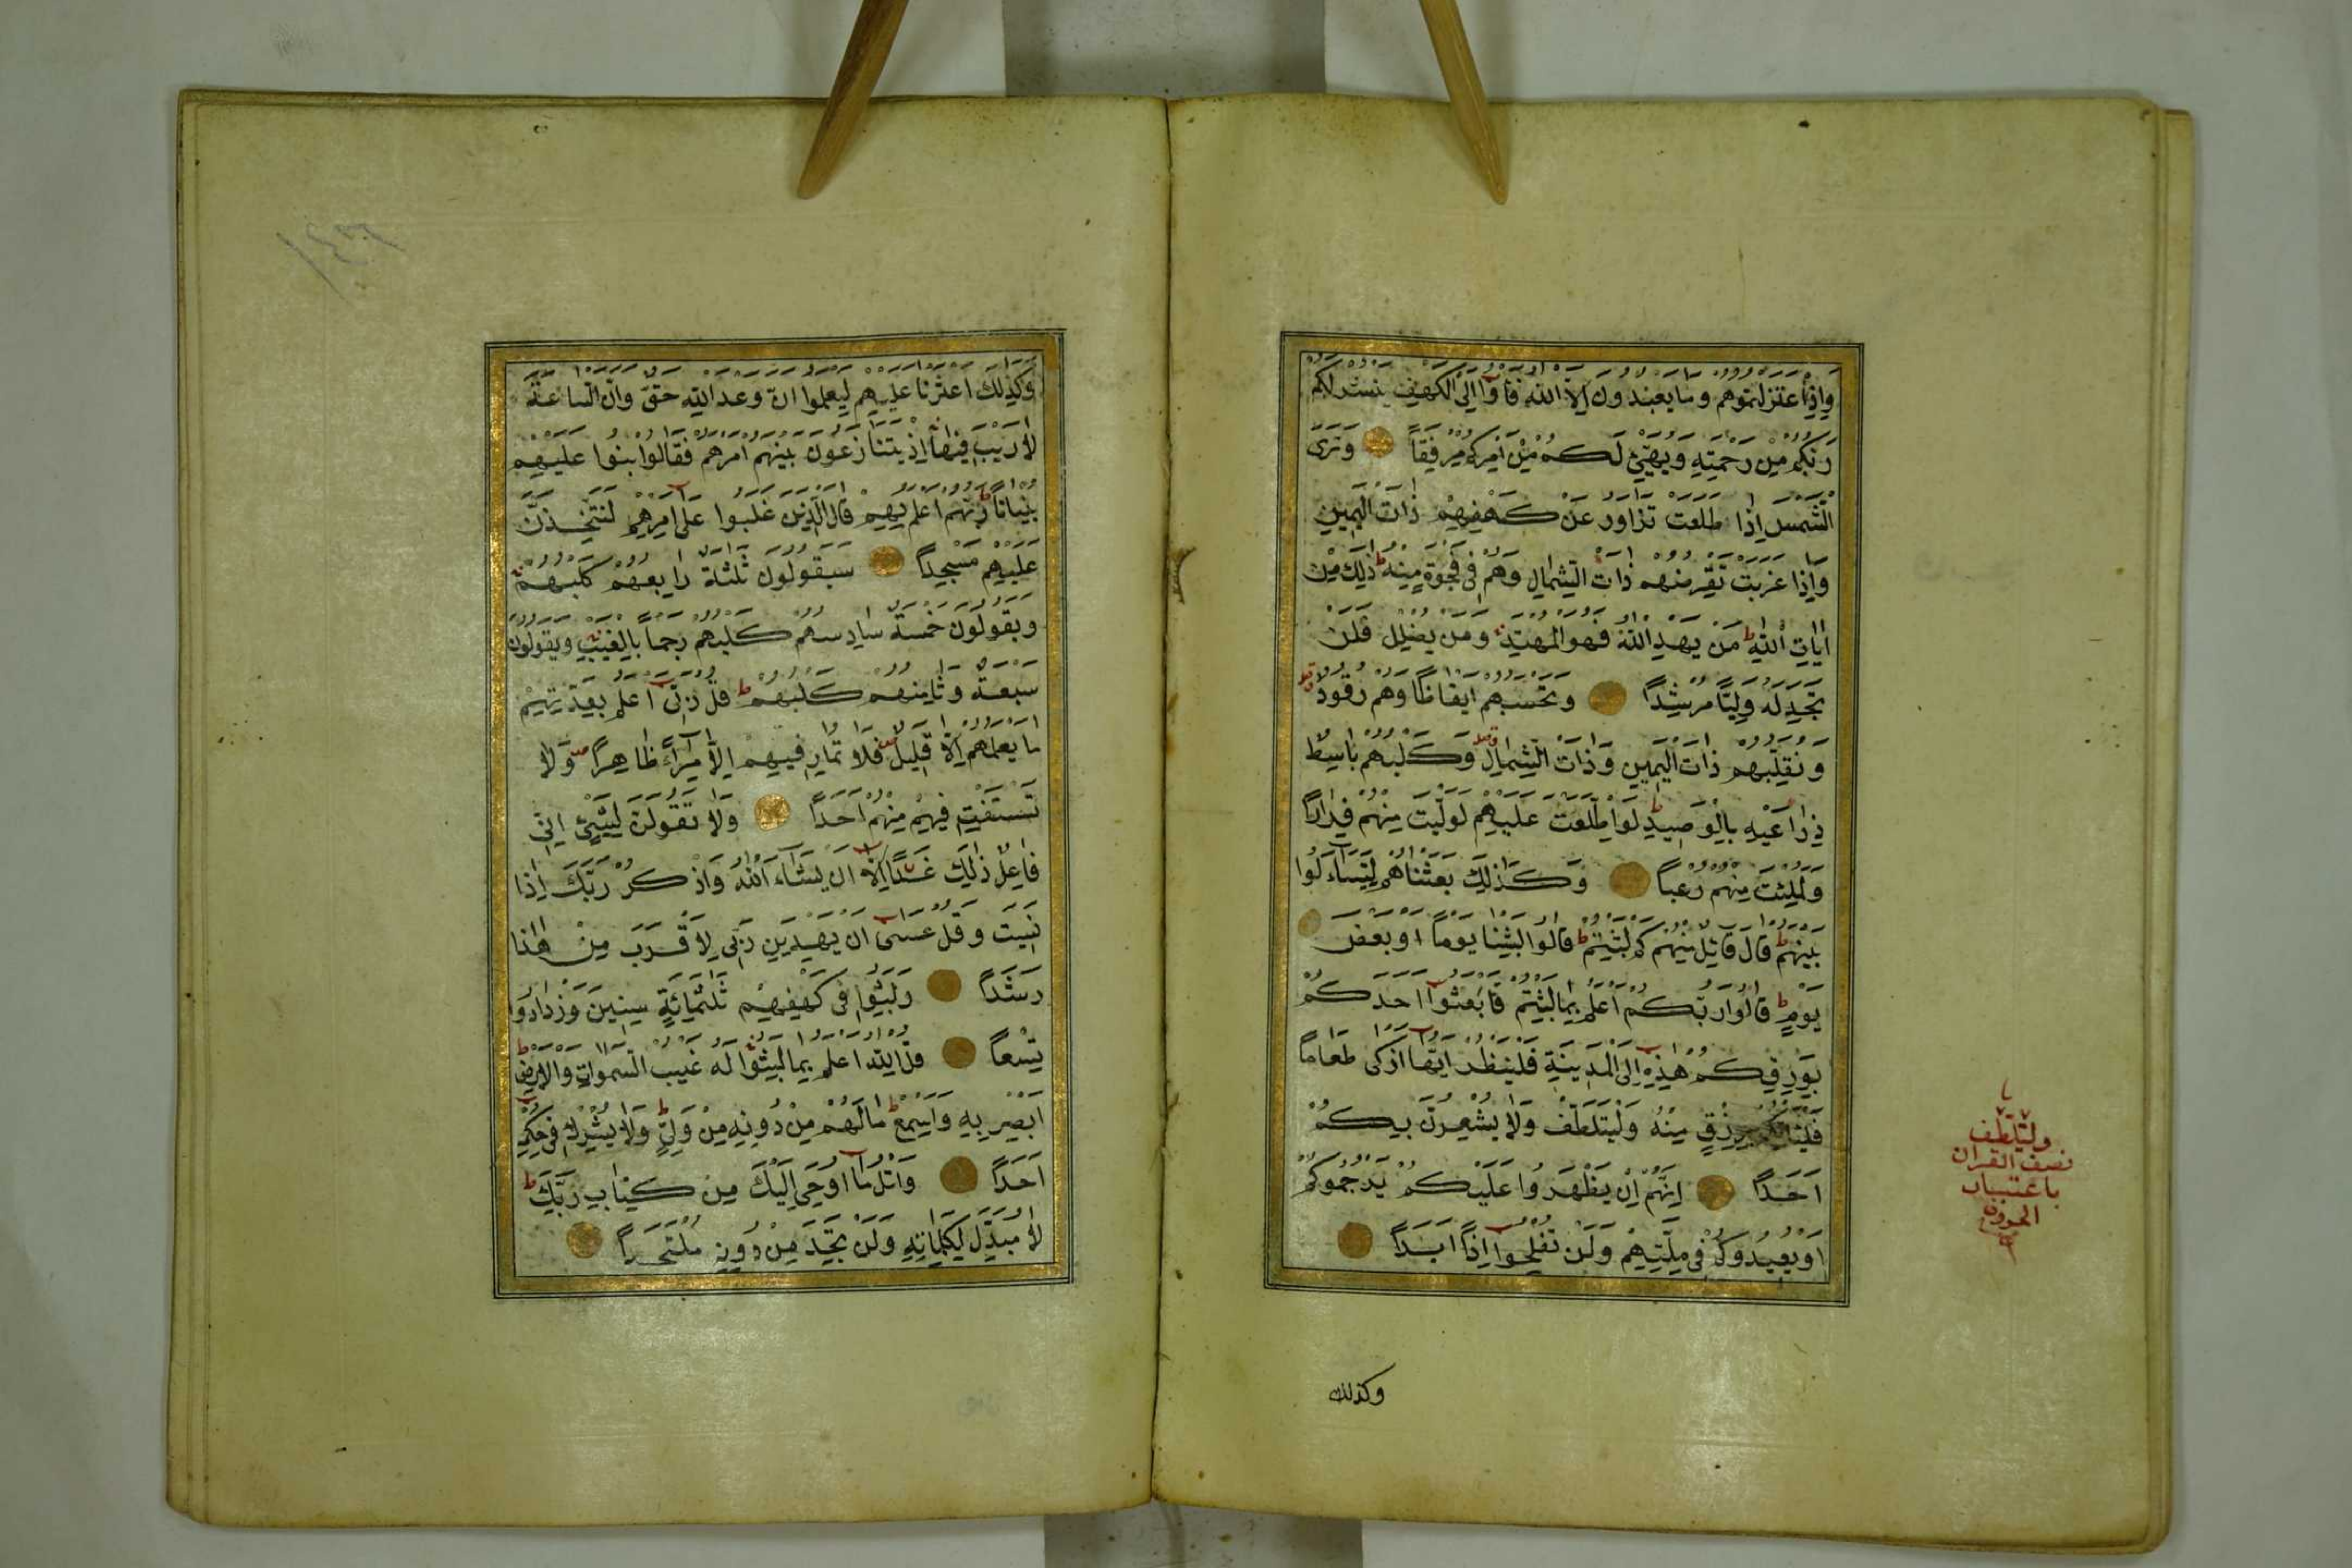 وَاِذِ اعْتَزَلْتُمُوهُمْ وَمَا يَعْبُدُونَ اِلَّا اللّٰهَ فَأْوُٓا اِلَى الْكَهْفِ يَنْشُرْ لَكُمْ
رَبُّكُمْ مِنْ رَحْمَتِهِ وَيُهَيِّئْ لَكُمْ مِنْ اَمْرِكُمْ مِرْفَقًا وَتَرَى
الشَّمْسَ اِذَا طَلَعَتْ تَزَاوَرُ عَنْ كَهْفِهِمْ ذَاتَ الْيَمِينِ
وَاِذَا غَرَبَتْ تَقْرِضُهُمْ ذَاتَ الشِّمَالِ وَهُمْ فِى فَجْوَةٍ مِنْهُ ط ذٰلِكَ مِنْ
اٰيَاتِ اللّٰهِ ط مَنْ يَهْدِ اللّٰهُ فَهُوَ الْمُهْتَدِ وَمَنْ يُضْلِلْ فَلَنْ
تَجِدَ لَهُ وَلِيًّا مُرْشِدًا وَتَحْسَبُهُمْ اَيْقَاظًا وَهُمْ رُقُودٌ
وَنُقَلِّبُهُمْ ذَاتَ الْيَمِينِ وَذَاتَ الشِّمَالِ وَكَلْبُهُمْ بَاسِطٌ
ذِرَاعَيْهِ بِالْوَصِيدِ ط لَوِ اطَّلَعْتَ عَلَيْهِمْ لَوَلَّيْتَ مِنْهُمْ فِرَارًا
وَلَمُلِئْتَ مِنْهُمْ رُعْبًا وَكَذٰلِكَ بَعَثْنَاهُمْ لِيَتَسَاءَلُوا
بَيْنَهُمْ ط قَالَ قَائِلٌ مِنْهُمْ كَمْ لَبِثْتُمْ ط قَالُوا لَبِثْنَا يَوْمًا اَوْ بَعْضَ
يَوْمٍ ط قَالُوا رَبُّكُمْ اَعْلَمُ بِمَا لَبِثْتُمْ فَابْعَثُوا اَحَدَكُمْ
بِوَرِقِكُمْ هٰذِهِ اِلَى الْمَدِينَةِ فَلْيَنْظُرْ اَيُّهَا اَزْكٰى طَعَامًا
فَلْيَأْتِكُمْ بِرِزْقٍ مِنْهُ وَلْيَتَلَطَّفْ وَلَا يُشْعِرَنَّ بِكُمْ
اَحَدًا اِنَّهُمْ اِنْ يَظْهَرُوا عَلَيْكُمْ يَرْجُمُوكُمْ
اَوْ يُعِيدُوكُمْ فِى مِلَّتِهِمْ وَلَنْ تُفْلِحُوا اِذًا اَبَدًا
وكذلك
وليتلطف
نصف القرآن
باعتبار
الحروف
وَكَذٰلِكَ اَعْثَرْنَا عَلَيْهِمْ لِيَعْلَمُوا اَنَّ وَعْدَ اللّٰهِ حَقٌّ وَاَنَّ السَّاعَةَ
لَا رَيْبَ فِيهَا اِذْ يَتَنَازَعُونَ بَيْنَهُمْ اَمْرَهُمْ فَقَالُوا ابْنُوا عَلَيْهِمْ
بُنْيَانًا ط رَبُّهُمْ اَعْلَمُ بِهِمْ قَالَ الَّذِينَ غَلَبُوا عَلٰى اَمْرِهِمْ لَنَتَّخِذَنَّ
عَلَيْهِمْ مَسْجِدًا سَيَقُولُونَ ثَلٰثَةٌ رَابِعُهُمْ كَلْبُهُمْ
وَيَقُولُونَ خَمْسَةٌ سَادِسُهُمْ كَلْبُهُمْ رَجْمًا بِالْغَيْبِ وَيَقُولُونَ
سَبْعَةٌ وَثَامِنُهُمْ كَلْبُهُمْ ط قُلْ رَبِّى اَعْلَمُ بِعِدَّتِهِمْ
مَا يَعْلَمُهُمْ اِلَّا قَلِيلٌ فَلَا تُمَارِ فِيهِمْ اِلَّا مِرَاءً ظَاهِرًا وَلَا
تَسْتَفْتِ فِيهِمْ مِنْهُمْ اَحَدًا وَلَا تَقُولَنَّ لِشَىْءٍ اِنِّى
فَاعِلٌ ذٰلِكَ غَدًا اِلَّا اَنْ يَشَاءَ اللّٰهُ وَاذْكُرْ رَبَّكَ اِذَا
نَسِيتَ وَقُلْ عَسٰى اَنْ يَهْدِيَنِ رَبِّى لِاَقْرَبَ مِنْ هٰذَا
رَشَدًا وَلَبِثُوا فِى كَهْفِهِمْ ثَلٰثَمِائَةٍ سِنِينَ وَازْدَادُوا
تِسْعًا قُلِ اللّٰهُ اَعْلَمُ بِمَا لَبِثُوا لَهُ غَيْبُ السَّمٰوَاتِ وَالْاَرْضِ ط
اَبْصِرْ بِهِ وَاَسْمِعْ ط مَا لَهُمْ مِنْ دُونِهِ مِنْ وَلِىٍّ ط وَلَا يُشْرِكُ فِى حُكْمِهِ
اَحَدًا وَاتْلُ مَا اُوحِىَ اِلَيْكَ مِنْ كِتَابِ رَبِّكَ ط
لَا مُبَدِّلَ لِكَلِمَاتِهِ وَلَنْ تَجِدَ مِنْ دُونِهِ مُلْتَحَدًا
١٤٦